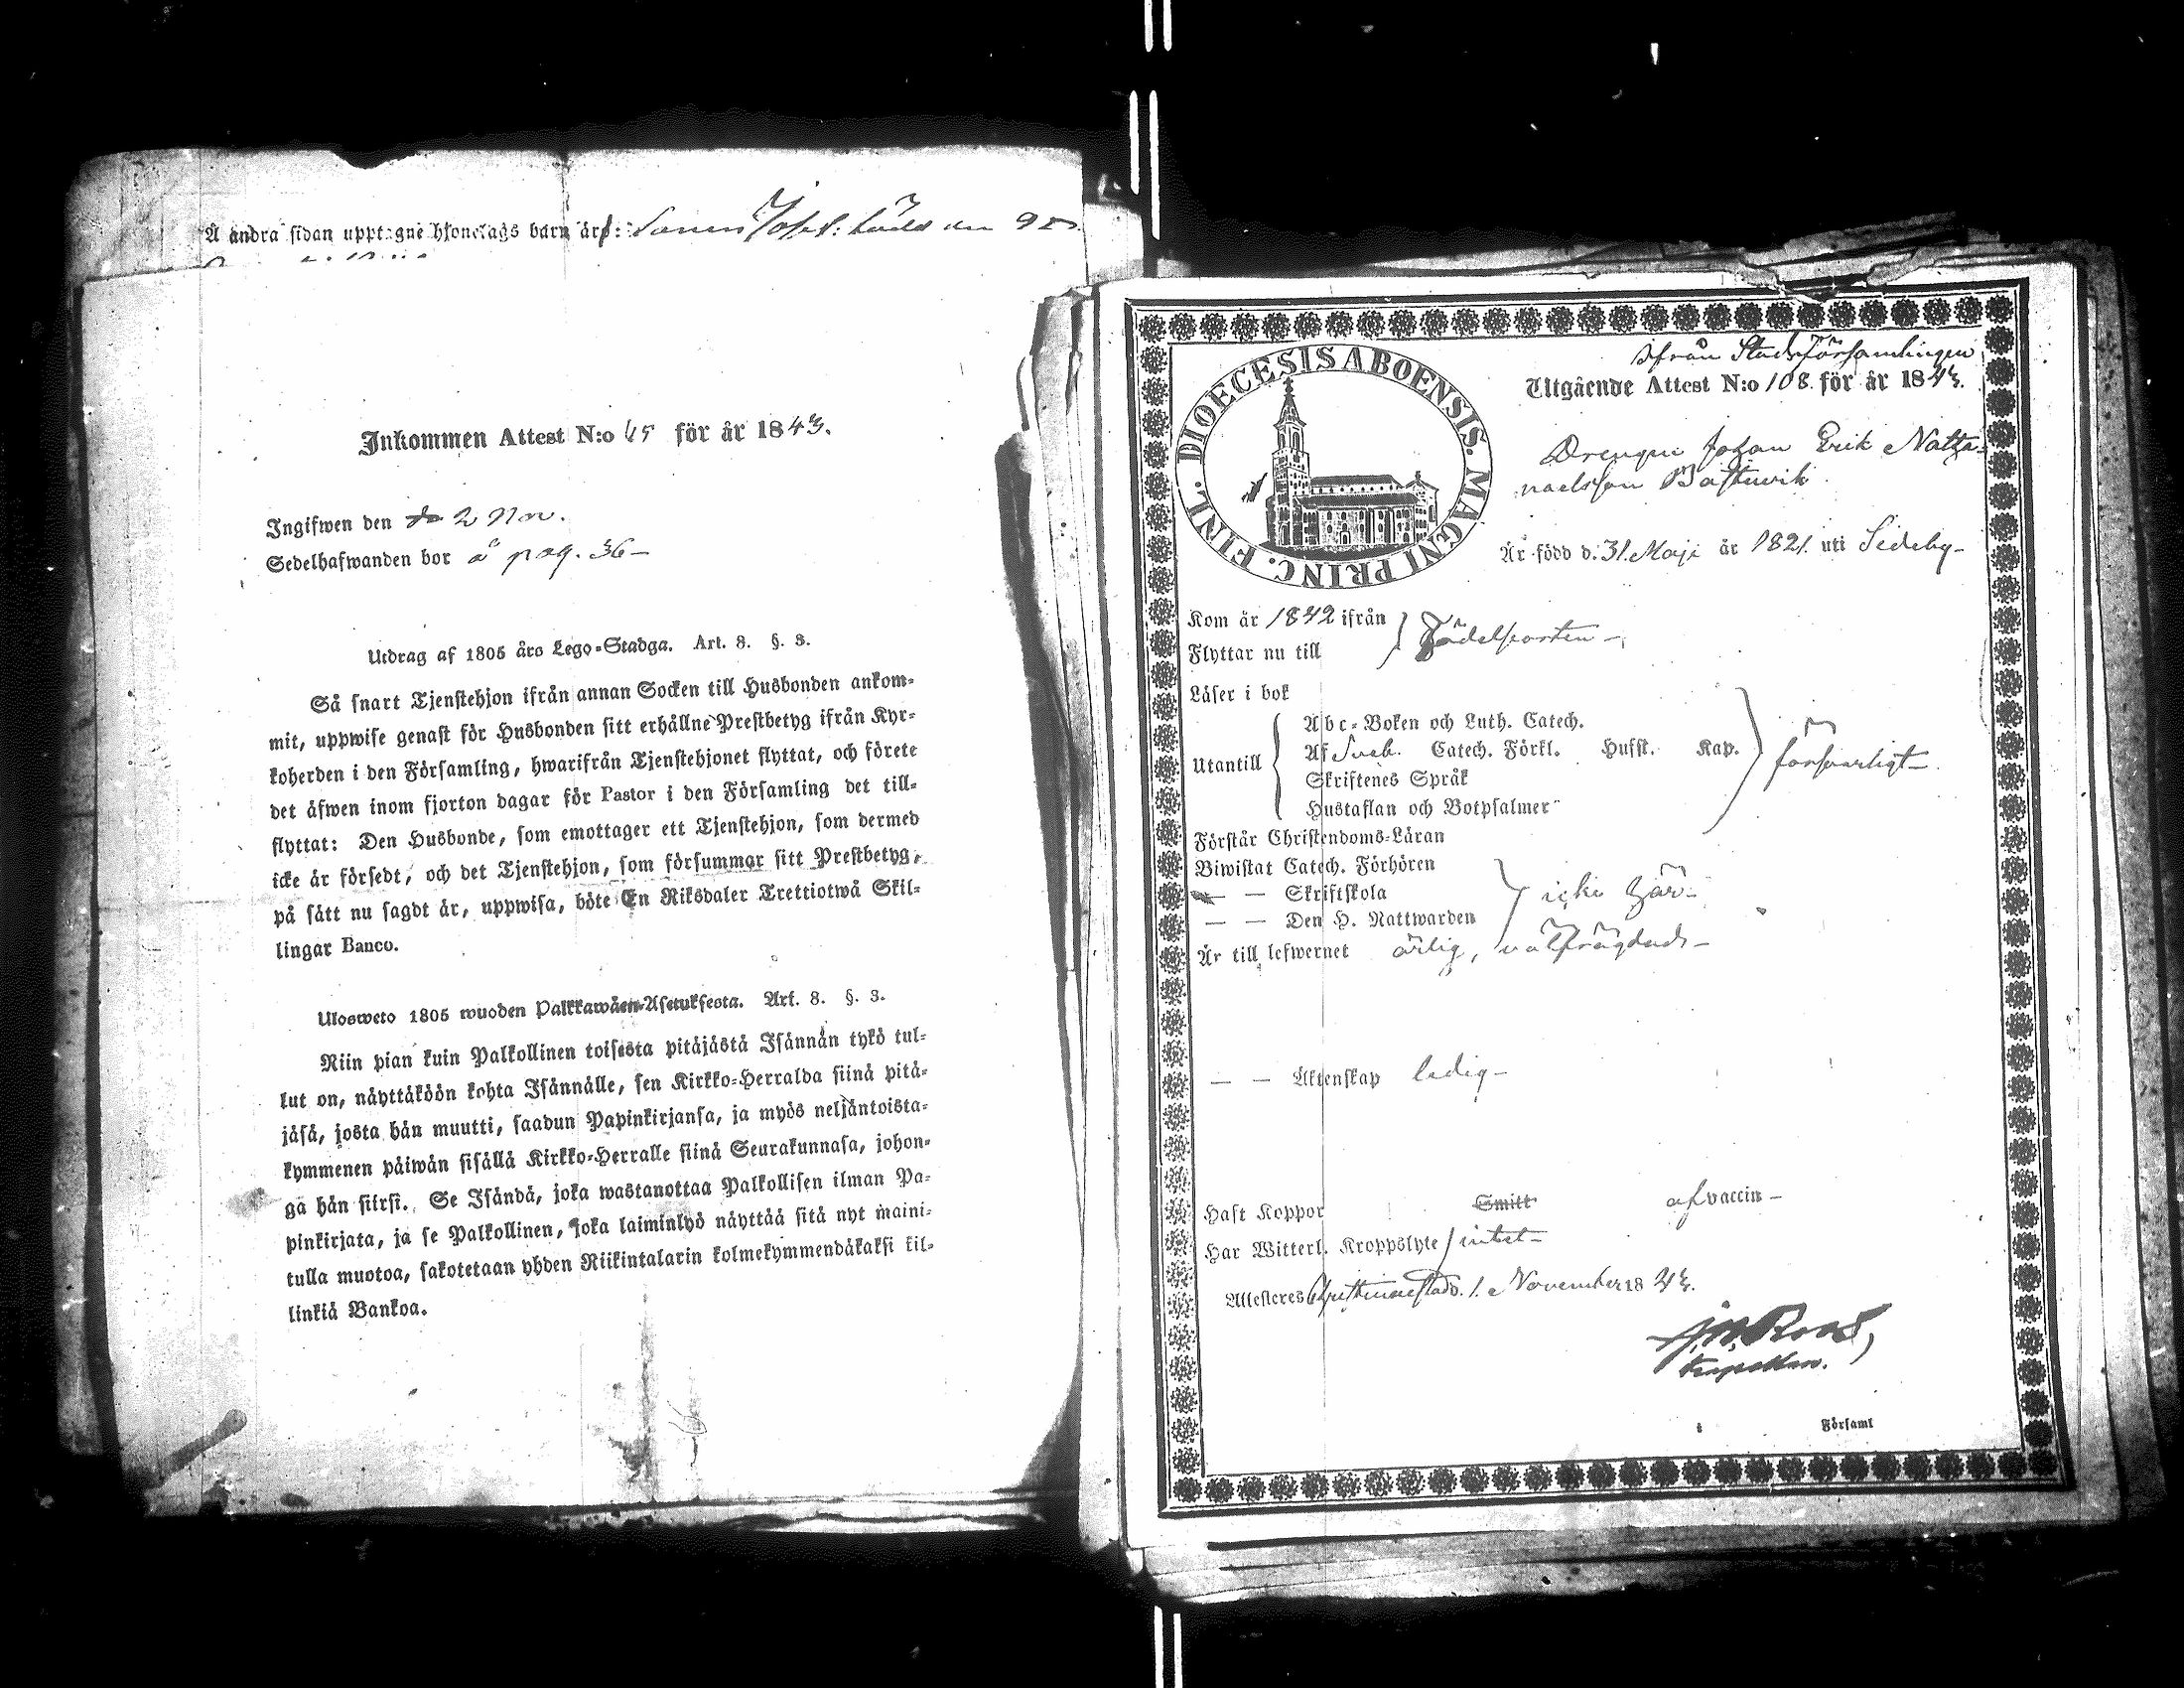 Å andra sidan upptagne hjonelags barn är: Sonen Josef: född den 9
Inkommen Attest N:o 45 för år 1843.
Ingifwen den 2 Nov.
Sedelhafwanden bor å pag. 36 –
Utdrag af 1805 års Lego-Stadga. Art. 8. §. 3.
Så snart Tjenstehjon ifrån annan Socken till Husbonden ankom-
mit, uppwise genast för Husbonden sitt erhållne Prestbetyg ifrån Kyr-
koherden i den Församling, hwarifrån Tjenstehjonet flyttat, och förete
det äfwen inom fjorton dagar för Pastor i den Församling det till-
flyttat: Den Husbonde, som emottager ett Tjenstehjon, som dermed
icke är försedt, och det Tjenstehjon, som försummar sitt Prestbetyg,
på sätt nu sagdt är, uppwisa, böte En Riksdaler Trettiotwå Skil-
lingar Banco.
Ulosweto 1805 wuoden Palkkawäen-Asetuksesta. Art. 8. §. 3.
Niin pian kuin Palkollinen toisesta pitäjästä Isännän tykö tul-
lut on, näyttäköön kohta Isännälle, sen Kirkko-Herralda siinä pitä-
jäsä, josta hän muutti, saadun Papinkirjansa, ja myös neljäntoista-
kymmenen päiwän sisällä Kirkko-Herralle siinä Seurakunnasa, johon-
ga hän siirsi. Se Isändä, joka wastanottaa Palkollisen ilman Pa-
pinkirjata, ja se Palkollinen, joka laiminlyö näyttää sitä nyt maini-
tulla muotoa, sakotetaan yhden Riikintalarin kolmekymmendäkaksi kil-
linkiä Bankoa.
DIOECESIS ABOENSIS. MAGNI PRINC. FINL.
ifrån Stadsförsamlingen
Utgående Attest N:o 108. för år 1843.
Drengen Johan Erik Natha-
naelsson Båsturik
Är född d. 31. Maji år 1821. uti Sideby –
Kom år 1842 ifrån
Flyttar nu till } Födelseorten –
Läser i bok
Utantill
Abc-Boken och Luth. Catech.
Af Sveb. Catech. Förkl. Husst. Kap.
Skriftenes Språk
Hustaflan och Botpsalmer
försvarligt –
Förstår Christendoms-Läran
Biwistat Catech. Förhören
— — Skriftskola
— — Den H. Nattwarden
icke här –
Är till lefwernet ärlig, välfrägdad –
— — Äktenskap ledig –
Haft Koppor Smitt af vaccin –
Har Witterl. Kroppslyte intet –
Attesteres Christinæstad d. 1. November 1843.
Roos,
Kapellan.
i Församl